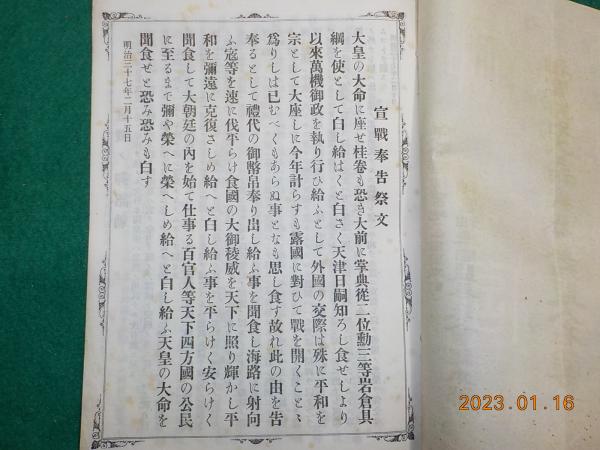 宣戰奉吿祭文
天皇の大命に座せ桂卷も恐き大前に掌典從二位勳三等岩倉具
綱を使として白し給はくと白さく天津日嗣知ろし食せしより
以來萬機御政を執り行ひ給ふとして外國の交際は殊に平和を
宗として大座しに今年計らすも露國に對ひて戰を開くことゝ
爲りしは已むべくもあらぬ事となも思し食す故れ此の由を吿
奉るとして禮代の御幣帛奉り出し給ふ事を聞食し海路に射向
ふ寇等を速に伐平らけ食國の大御稜威を天下に照り輝かし平
和を彌遠に克復さしめ給へと白し給ふ事を平らけく安らけく
聞食して大朝廷の內を始て仕事る百官人等天下四方國の公民
に至るまて彌や榮へに榮へしめ給へと白し給ふ天皇の大命を
聞食せと恐み恐みも白す
明治三十七年二月十五日
2023.01.16